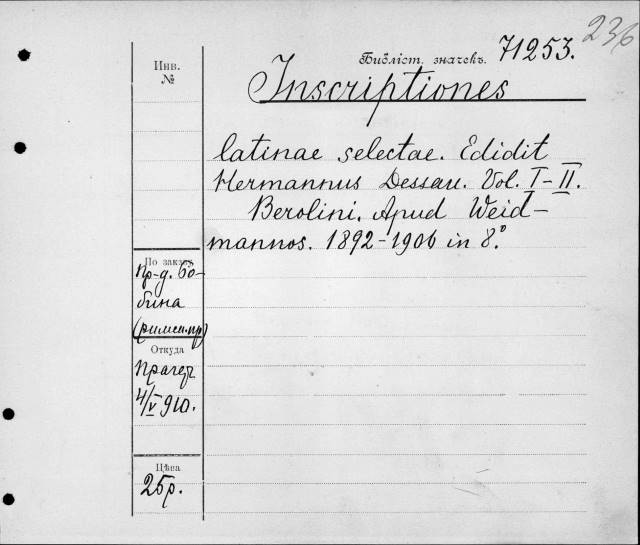 236
Библіот. значекъ. 71253.
Инв.
№
Inscriptiones
latinae selectae. Edidit
Hermannus Dessau. Vol. I-II.
Berolini. Apud Weid-
mannos. 1892-1906 in 8.°
По заказу
Пр-д. Бо-
бина
(римск.пр)
Откуда
Прагеръ
4/V 910.
Цѣна
25р.